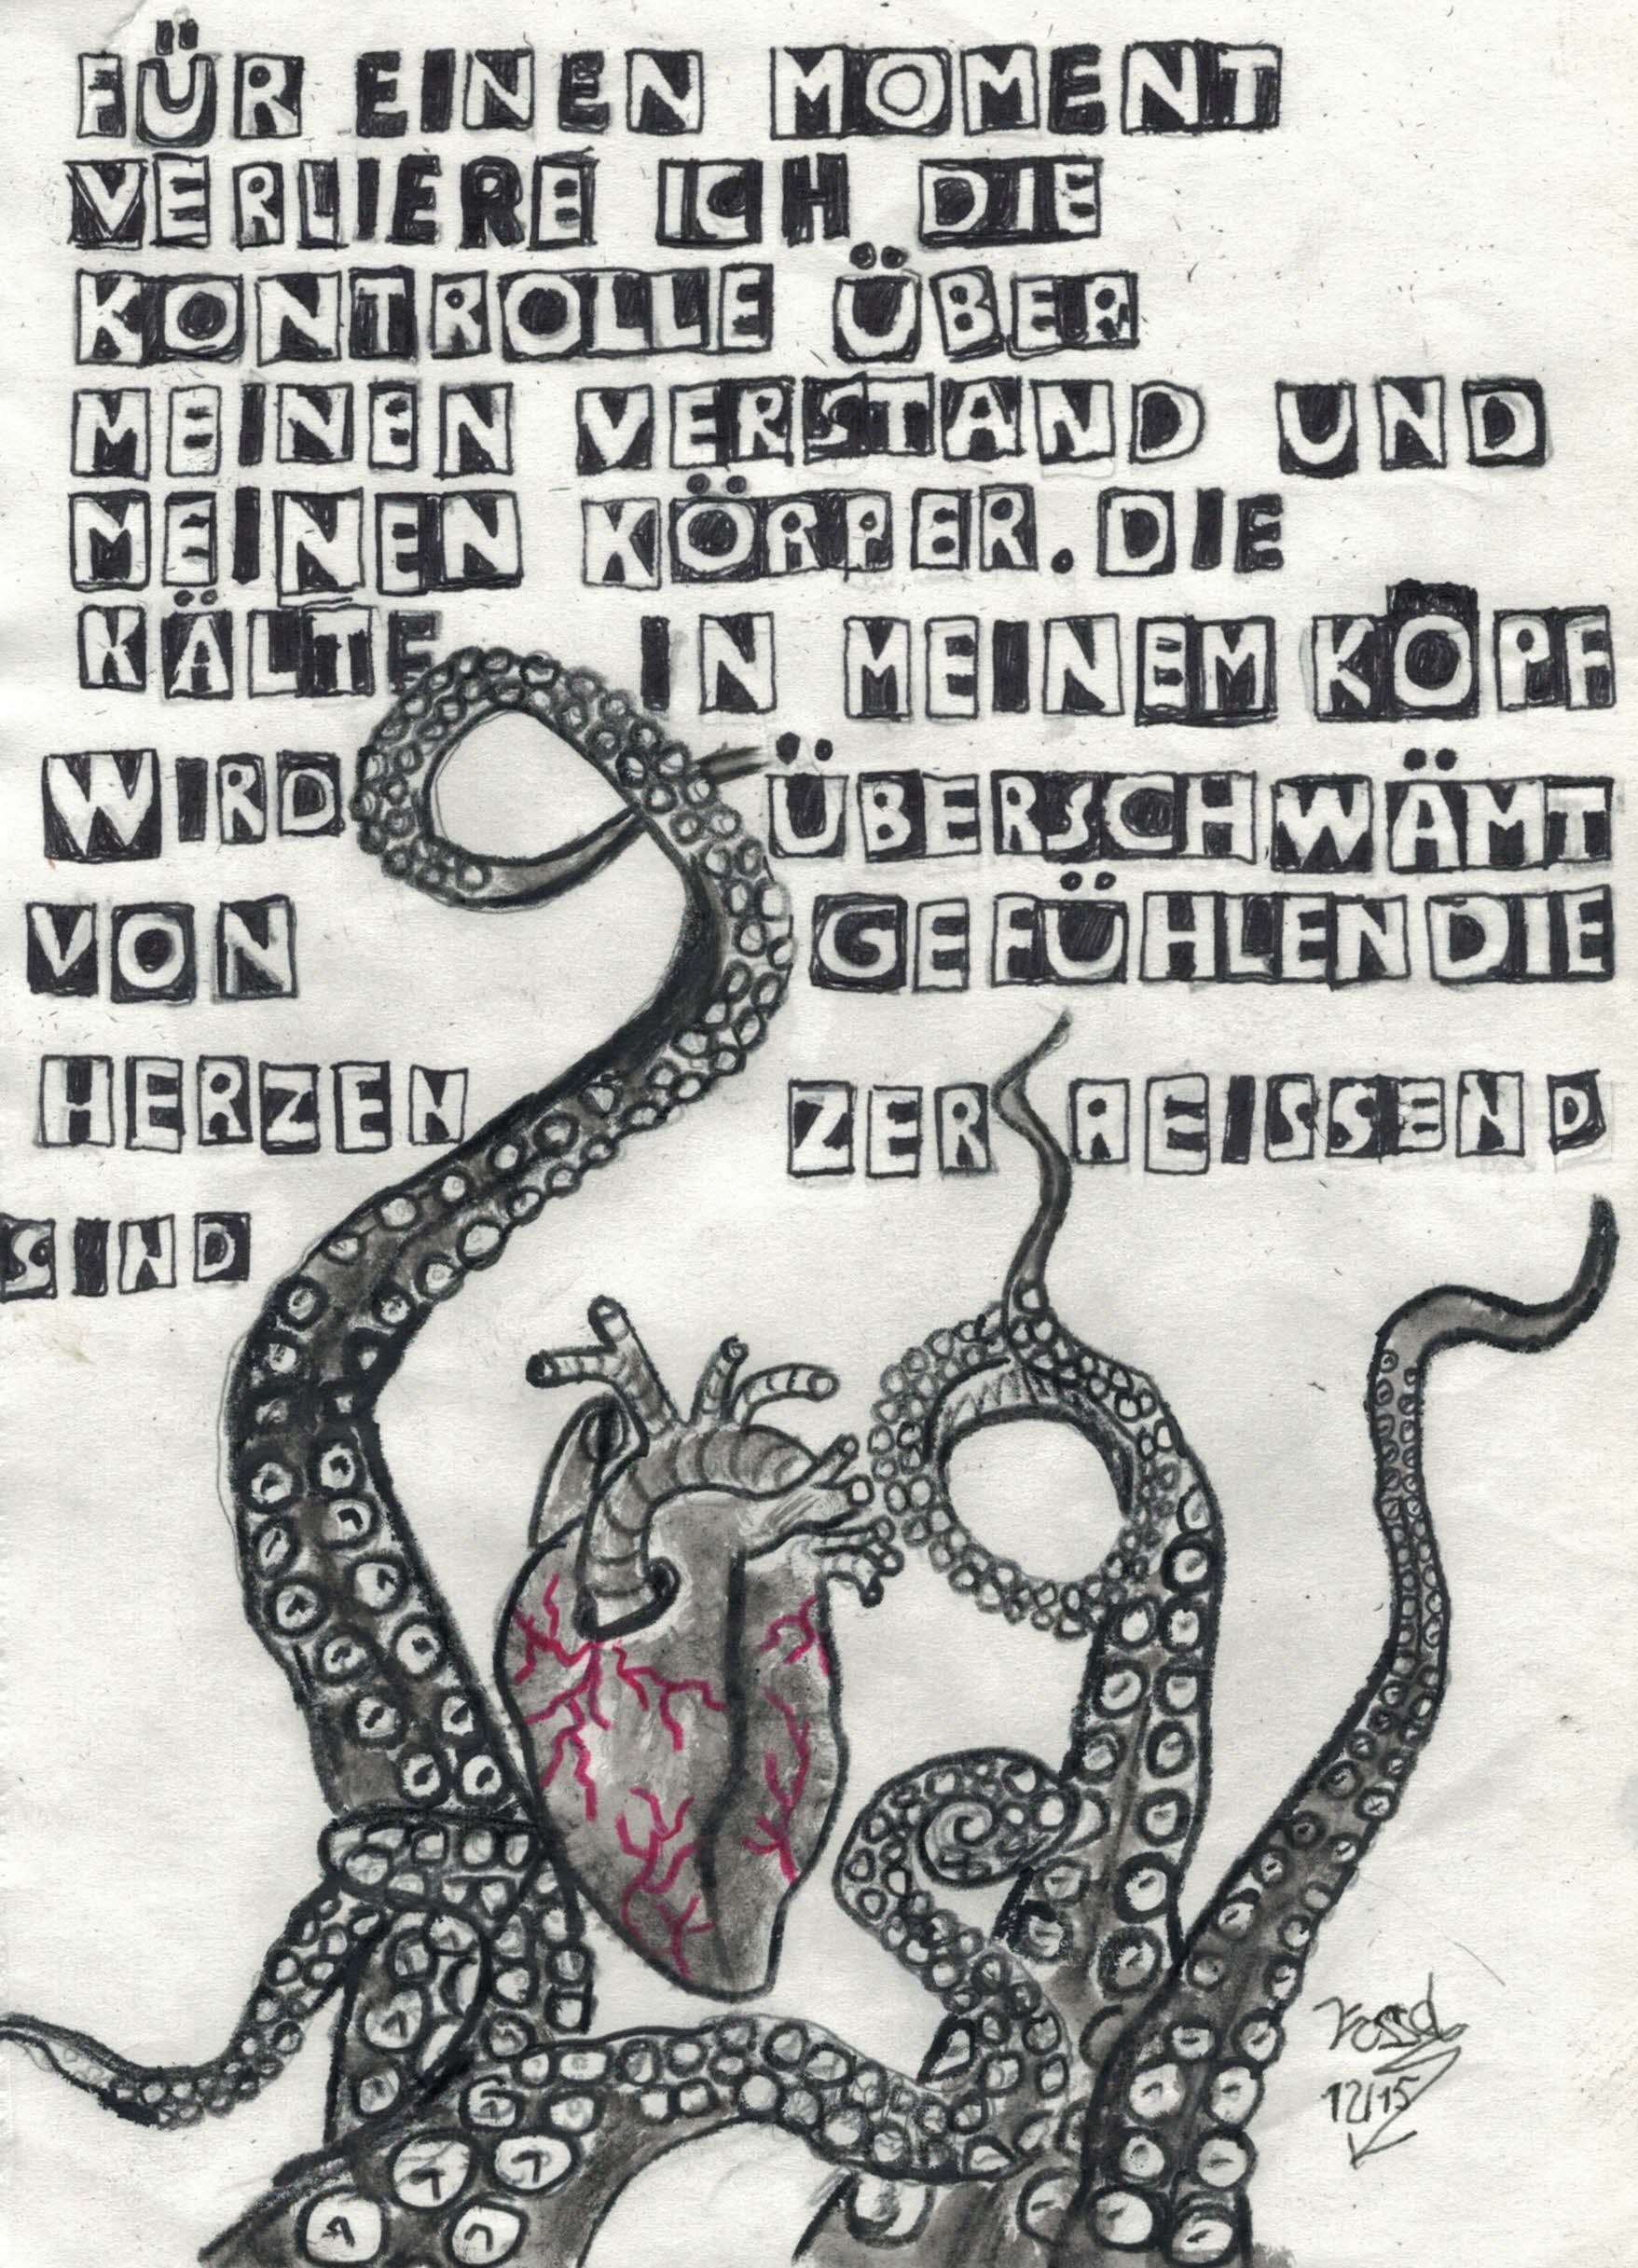 FÜR EINEN MOMENT
VERLIERE ICH DIE
KONTROLLE ÜBER
MEINEN VERSTAND UND
MEINEN KÖRPER. DIE
KÄLTE IN MEINEM KOPF
WIRD ÜBERSCHWÄMT
VON GEFÜHLEN DIE
HERZEN ZER REISSEND
SIND
12/15